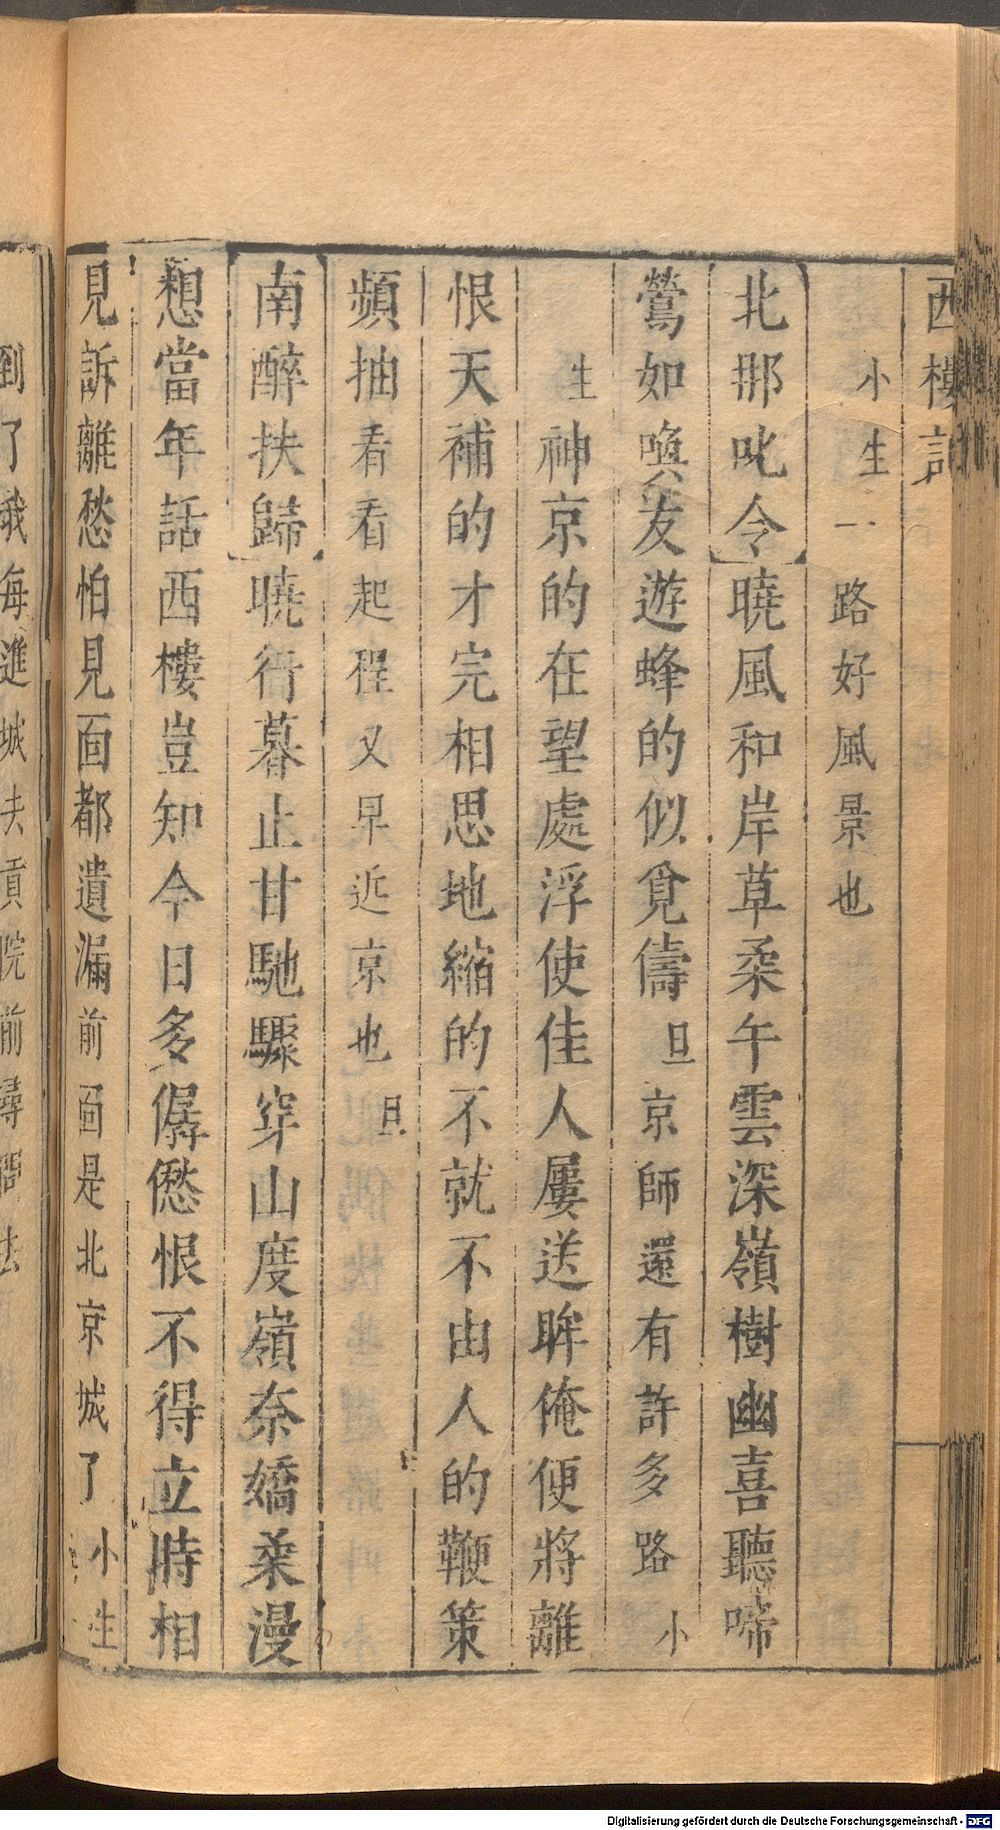 西樓記
小生一路好風景也
北那叱令曉風和岸草柔午雲深嶺樹幽喜聽啼
鶯如喚友遊蜂的似覓儔旦京師還有許多路小
生神京的在望處浮使佳人屢送眸俺便將離
恨天補的才完相思地縮的不就不由人的鞭策
頻抽看看起程又早近京也旦
南醉扶歸曉行暮止甘馳驟穿山度嶺奈嬌柔漫
想當年話西樓豈知今日多僝僽恨不得立時相
見訴離愁怕見面都遺漏前面是北京城了小生
到了我每進城去貢院前尋寓去
Digitalisierung gefördert durch die Deutsche Forschungsgemeinschaft - DFG